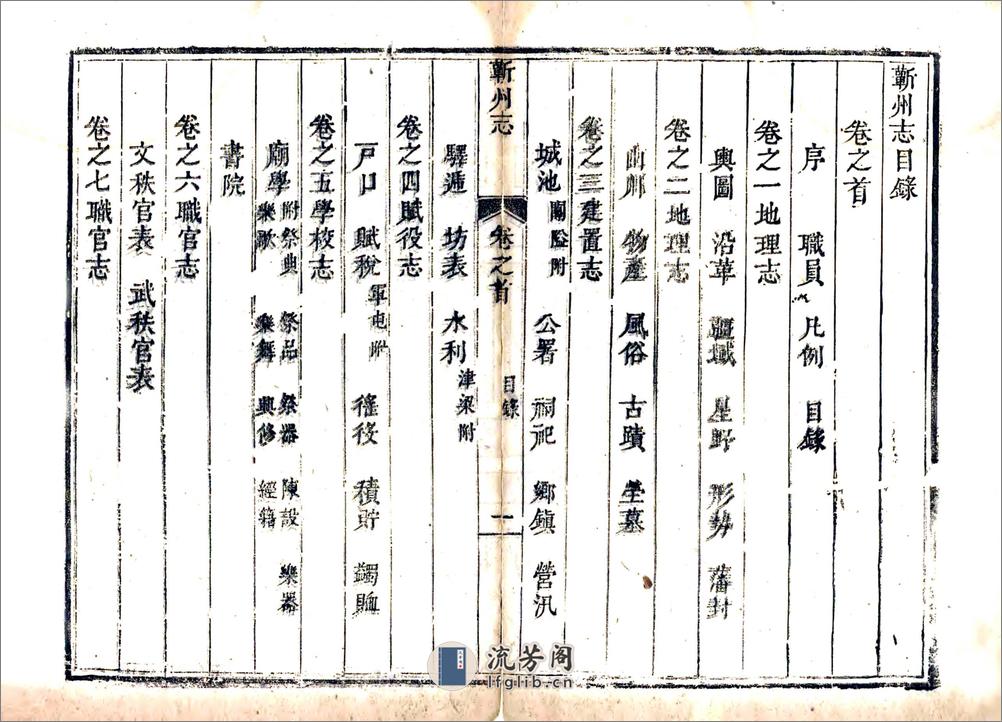 蘄州志目錄
卷之首
序 職員 凡例 目錄
卷之一地理志
輿圖 沿革 疆域 星野 形勢 藩封
卷之二地理志
山川 物產 風俗 古蹟 塋墓
卷之三建置志
城池 關隘附 公署 祠祀 鄉鎮 營汛
蘄州志 卷之首 目錄 一
驛遞 坊表 水利 津梁附
卷之四賦役志
戸口 賦稅 軍屯附 徭役 積貯 蠲賉
卷之五學校志
廟學 附祭典 祭品 祭器 陳設 樂器 樂歌 樂舞 興修 經籍
書院
卷之六職官志
文秩官表 武秩官表
卷之七職官志
流芳阁
lfglib.cn